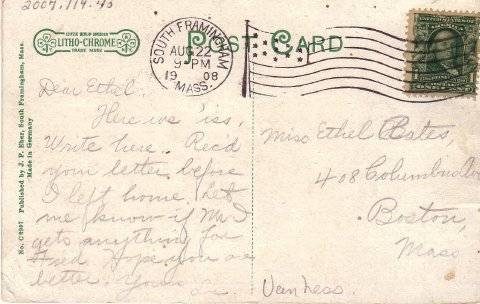 2007.114.43
LEIPZIG BERLIN DRESDEN
LITHO-CHROME
TRADE MARK
SOUTH FRAMINGHAM
AUG 22
9 PM
1908
MASS.
POST CARD
1
ONE CENT
No. C 6907 Published by J. F. Eber, South Framingham, Mass.
Made in Germany
Dear Ethel:
Here we 'iss.
Write here. Rec'd
your letter before
I left home. Let
me know if
gets anything for
Fred. Hope you are
better. Yours
Miss Ethel Bates
408 Columbus Av
Boston,
Mass
Van Ness.